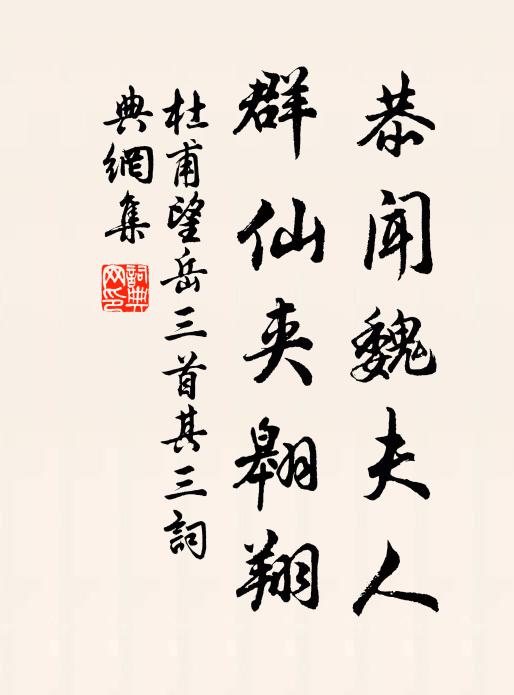 恭闻魏夫人
群仙夹翱翔
杜甫望岳三首其三詞
典網集
詞典网印